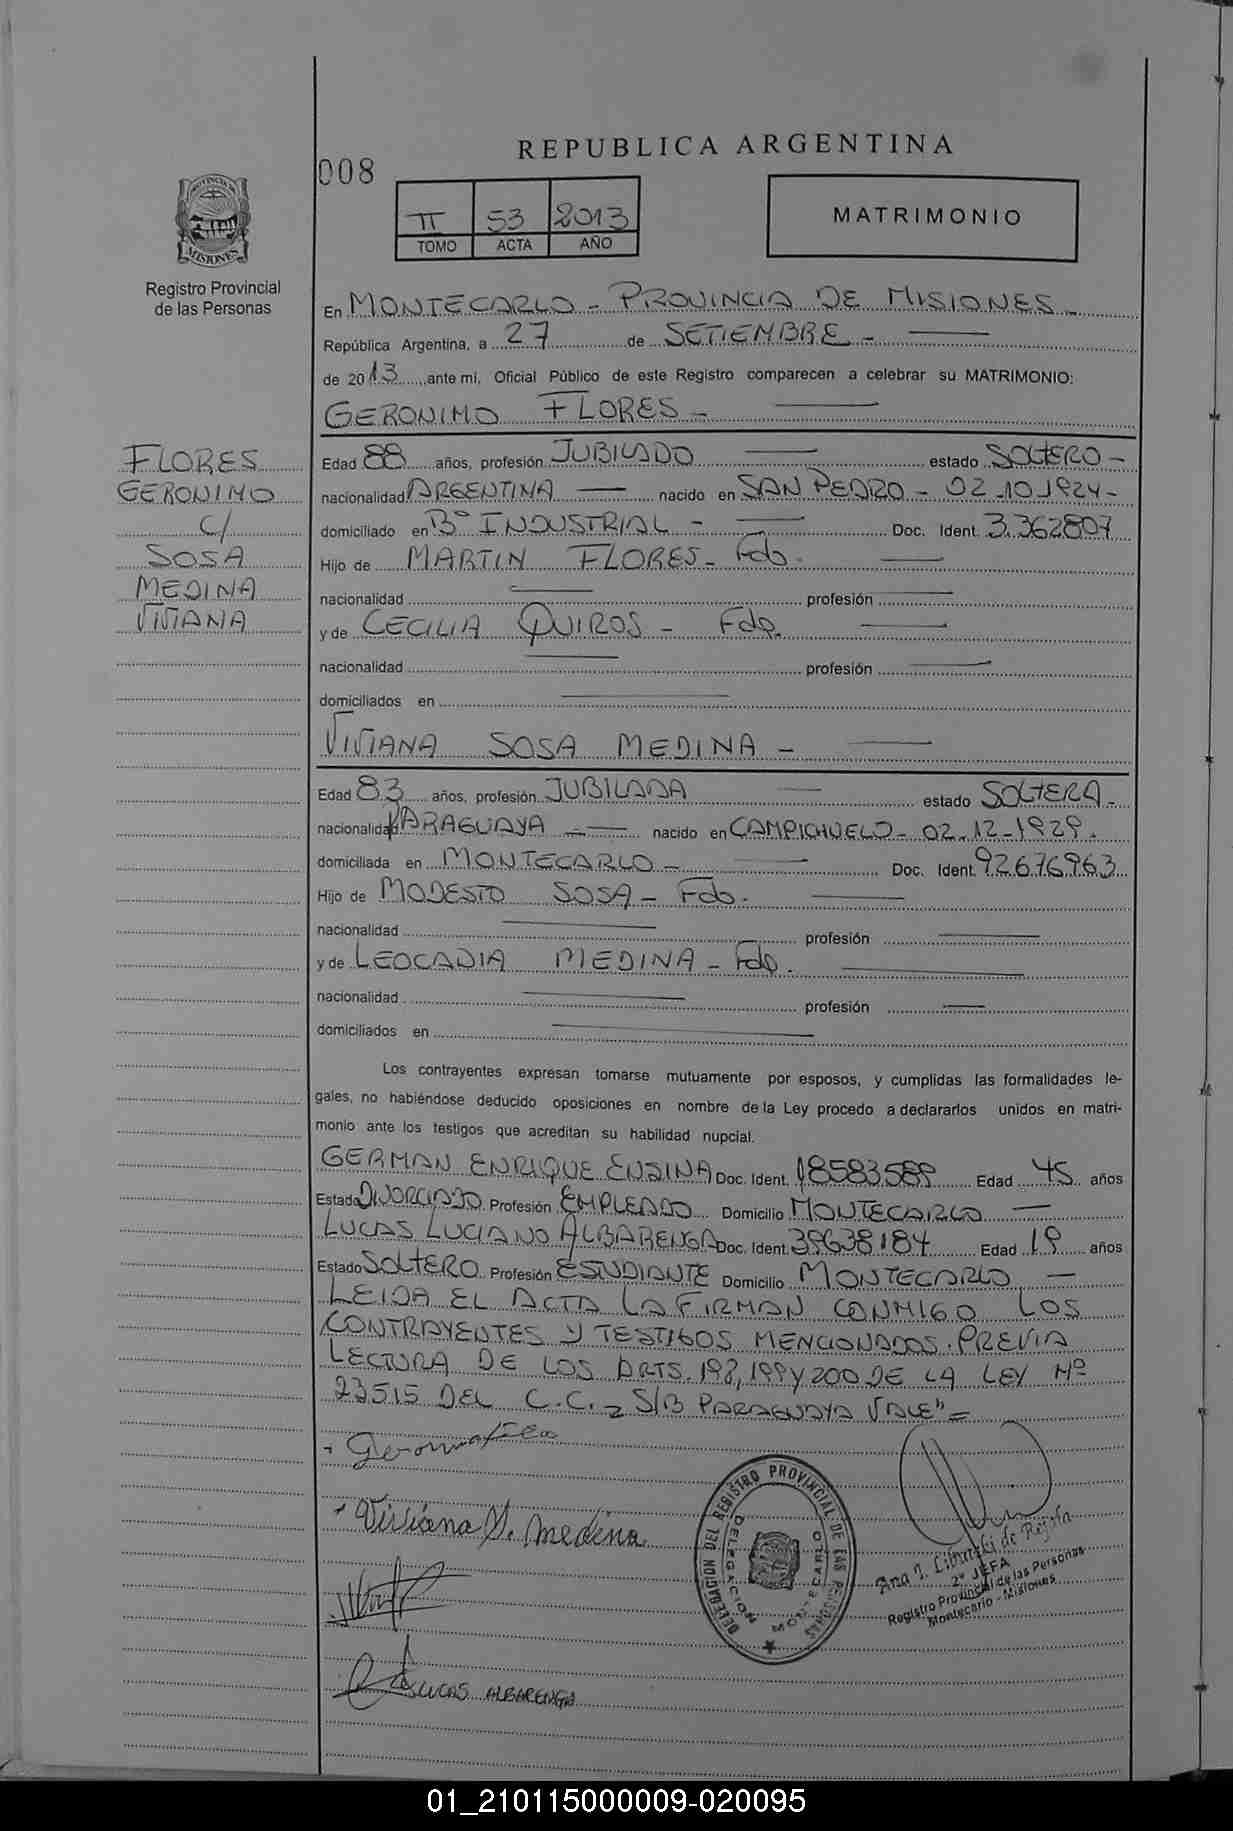 REPUBLICA ARGENTINA
008
II 53 2013
TOMO ACTA AÑO
MATRIMONIO
PROVINCIA DE
MISIONES
Registro Provincial
de las Personas
En MONTECARLO - PROVINCIA DE MISIONES -
República Argentina, a 27 de SETIEMBRE -
de 2013 ante mi, Oficial Público de este Registro comparecen a celebrar su MATRIMONIO:
GERONIMO FLORES -
FLORES
GERONIMO
C/
SOSA
MEDINA
VIVIANA
Edad 88 años, profesión JUBILADO estado SOLTERO -
nacionalidad ARGENTINA nacido en SAN PEDRO - 02-10-1924 -
domiciliado en Bº INDUSTRIAL - Doc. Ident. 3.362807
Hijo de MARTIN FLORES - Fdo.
nacionalidad profesión
y de CECILIA QUIROS - Fda.
nacionalidad profesión
domiciliados en
VIVIANA SOSA MEDINA -
Edad 83 años, profesión JUBILADA estado SOLTERA -
nacionalidad PARAGUAYA nacido en CAMPICHUELO - 02-12-1929.
domiciliada en MONTECARLO - Doc. Ident. 92676963
Hijo de MODESTO SOSA - Fdo.
nacionalidad profesión
y de LEOCADIA MEDINA - Fda.
nacionalidad profesión
domiciliados en
Los contrayentes expresan tomarse mutuamente por esposos, y cumplidas las formalidades le-
gales, no habiéndose deducido oposiciones en nombre de la Ley procedo a declararlos unidos en matri-
monio ante los testigos que acreditan su habilidad nupcial.
GERMAN ENRIQUE ENSINA Doc. Ident. 18583589 Edad 45 años
Estado DIVORCIADO Profesión EMPLEADO Domicilio MONTECARLO
LUCAS LUCIANO ALBARENGA Doc. Ident. 39638184 Edad 19 años
Estado SOLTERO Profesión ESTUDIANTE Domicilio MONTECARLO
LEIDA EL ACTA LA FIRMAN CONMIGO LOS
CONTRAYENTES Y TESTIGOS MENCIONADOS. PREVIA
LECTURA DE LOS ARTS. 198, 199 Y 200 DE LA LEY Nº
23515 DEL C.C. - S/B PARAGUAYA VALE" =
Viviana S. Medina
DELEGACION DEL REGISTRO PROVINCIAL DE LAS PERSONAS
DELEGACION MONTECARLO
2º JEFA
Registro Provincial de las Personas
Montecarlo - Misiones
LUCAS ALBARENGA
01_210115000009-020095